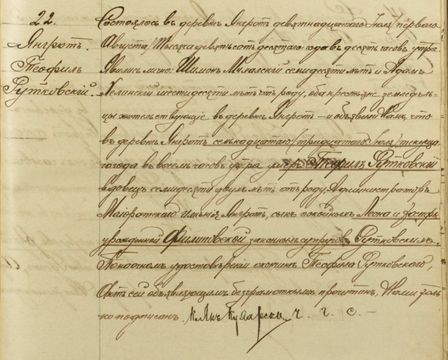 22.
Янрот.
Теофиль
Рутковский.
Состоялось въ деревнѣ Янротъ девятнадцатаго Іюля / перваго
Августа / тысяча девятьсотъ десятаго года въ десять часовъ утра.
Явились лично: Шимонъ семидесяти лѣтъ и Адамъ
шестидесяти лѣтъ отъ роду, оба крестьяне земледѣль-
цы жительствующіе въ деревнѣ Янротъ — и объявили Намъ, что
въ деревнѣ Янротъ семнадцатаго / тридцатаго Іюля / текуща-
го года въ восемь часовъ утра умеръ Теофиль Рутковскій
вдовецъ семидесяти двухъ лѣтъ отъ роду, Администраторъ
Маіоратскаго Имѣнія Янротъ, сынъ покойныхъ и
урожденной законныхъ супруговъ Рутковскихъ.
По настоящемъ удостовѣреніи о кончинѣ Теофиля Рутковскаго,
Актъ сей объявляющимъ безграмотнымъ прочитанъ, Нами толь-
ко подписанъ.